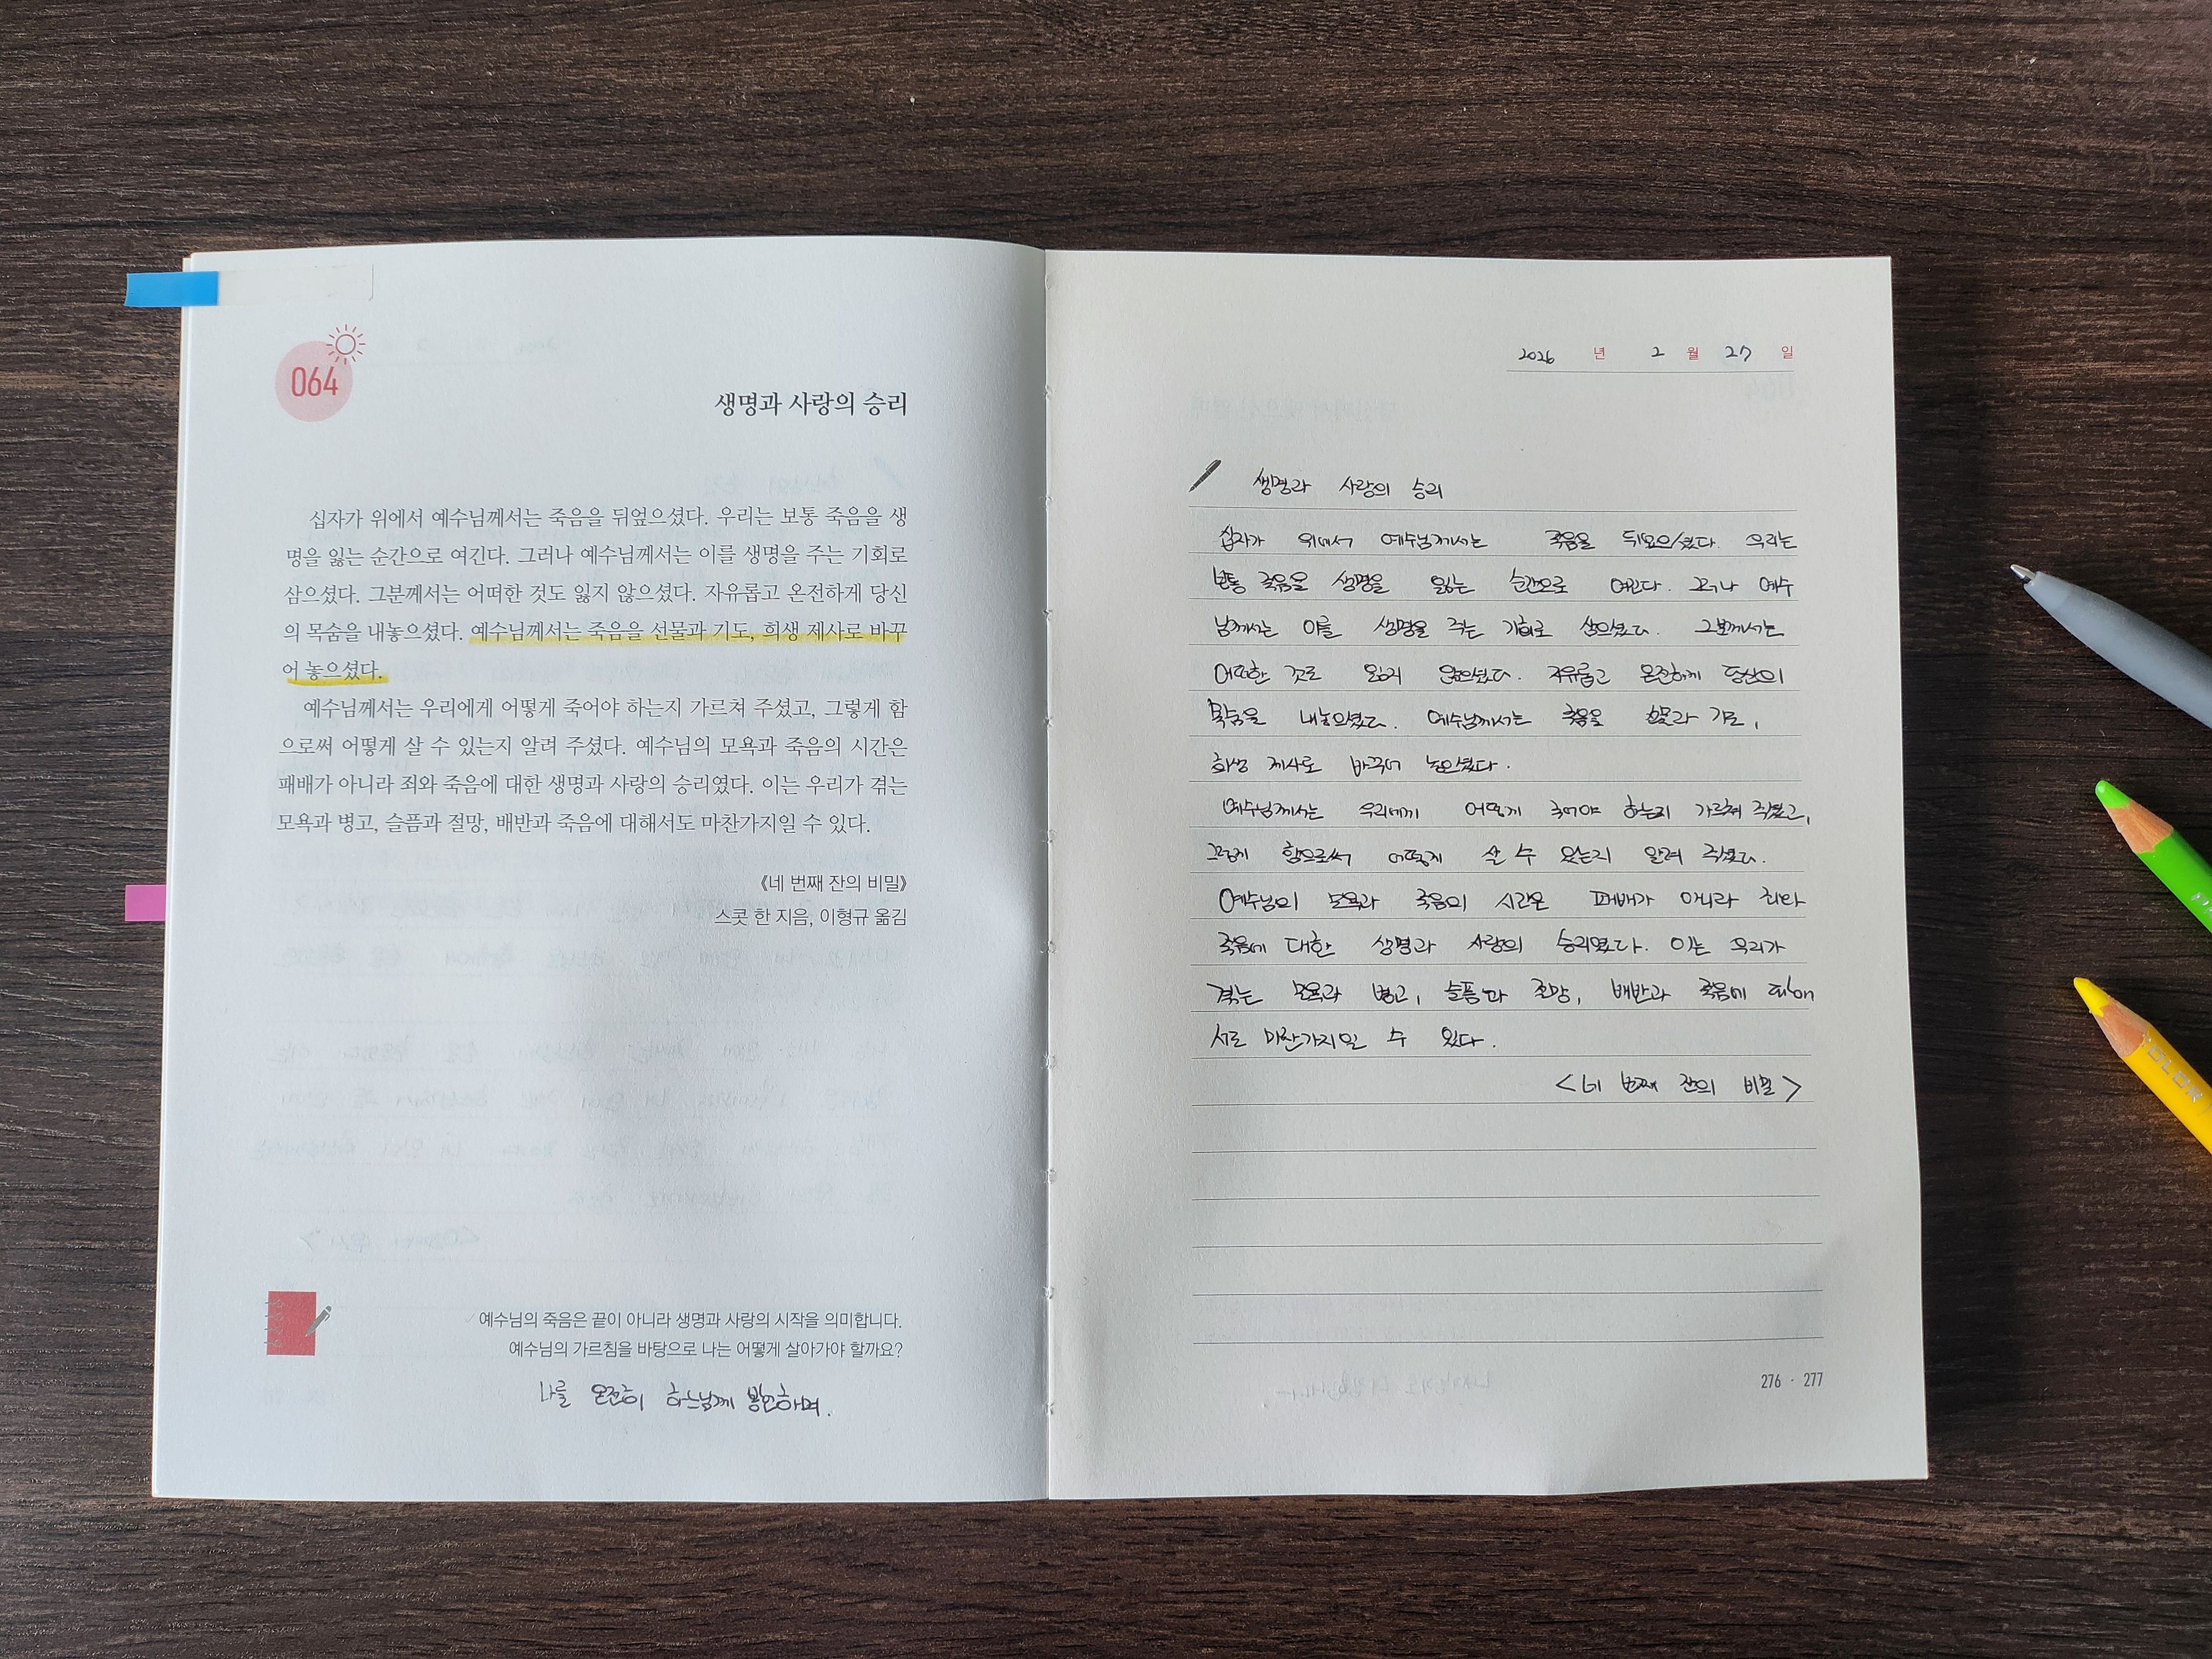 064
생명과 사랑의 승리
십자가 위에서 예수님께서는 죽음을 뒤엎으셨다. 우리는 보통 죽음을 생
명을 잃는 순간으로 여긴다. 그러나 예수님께서는 이를 생명을 주는 기회로
삼으셨다. 그분께서는 어떠한 것도 잃지 않으셨다. 자유롭고 온전하게 당신
의 목숨을 내놓으셨다. 예수님께서는 죽음을 선물과 기도, 희생 제사로 바꾸
어 놓으셨다.
예수님께서는 우리에게 어떻게 죽어야 하는지 가르쳐 주셨고, 그렇게 함
으로써 어떻게 살 수 있는지 알려 주셨다. 예수님의 모욕과 죽음의 시간은
패배가 아니라 죄와 죽음에 대한 생명과 사랑의 승리였다. 이는 우리가 겪는
모욕과 병고, 슬픔과 절망, 배반과 죽음에 대해서도 마찬가지일 수 있다.
《네 번째 잔의 비밀》
스콧 한 지음, 이형규 옮김
예수님의 죽음은 끝이 아니라 생명과 사랑의 시작을 의미합니다.
예수님의 가르침을 바탕으로 나는 어떻게 살아가야 할까요?
나를 온전히 하느님께 봉헌하며.
2026 년 2 월 27 일
생명과 사랑의 승리
십자가 위에서 예수님께서는 죽음을 뒤엎으셨다. 우리는
보통 죽음을 생명을 잃는 순간으로 여긴다. 그러나 예수
님께서는 이를 생명을 주는 기회로 삼으셨다. 그분께서는
어떠한 것도 잃지 않으셨다. 자유롭고 온전하게 당신의
목숨을 내놓으셨다. 예수님께서는 죽음을 선물과 기도,
희생 제사로 바꾸어 놓으셨다.
예수님께서는 우리에게 어떻게 죽어야 하는지 가르쳐 주셨고,
그렇게 함으로써 어떻게 살 수 있는지 알려 주셨다.
예수님의 모욕과 죽음의 시간은 패배가 아니라 죄와
죽음에 대한 생명과 사랑의 승리였다. 이는 우리가
겪는 모욕과 병고, 슬픔과 절망, 배반과 죽음에 대해
서도 마찬가지일 수 있다.
<네 번째 잔의 비밀>
276 · 277